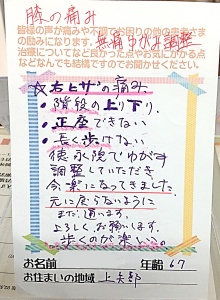 膝の痛み
皆様の声が痛みや不調でお困りの方の
の励みになります。無痛ゆがみ調整
治療についてなど良かった点やお気にかかる点
などなんでも結構ですのでお聞かせください。
☆右ヒザの痛み
・階段の上り下り
・正座できない
・長く歩けない
猿永院でゆがみ
調整していただき
今楽になってきました
元に戻らないように
また通います。
よろしくお願いします。
歩くのが楽しい。
お名前
年齢 67
お住まいの地域 上矢部